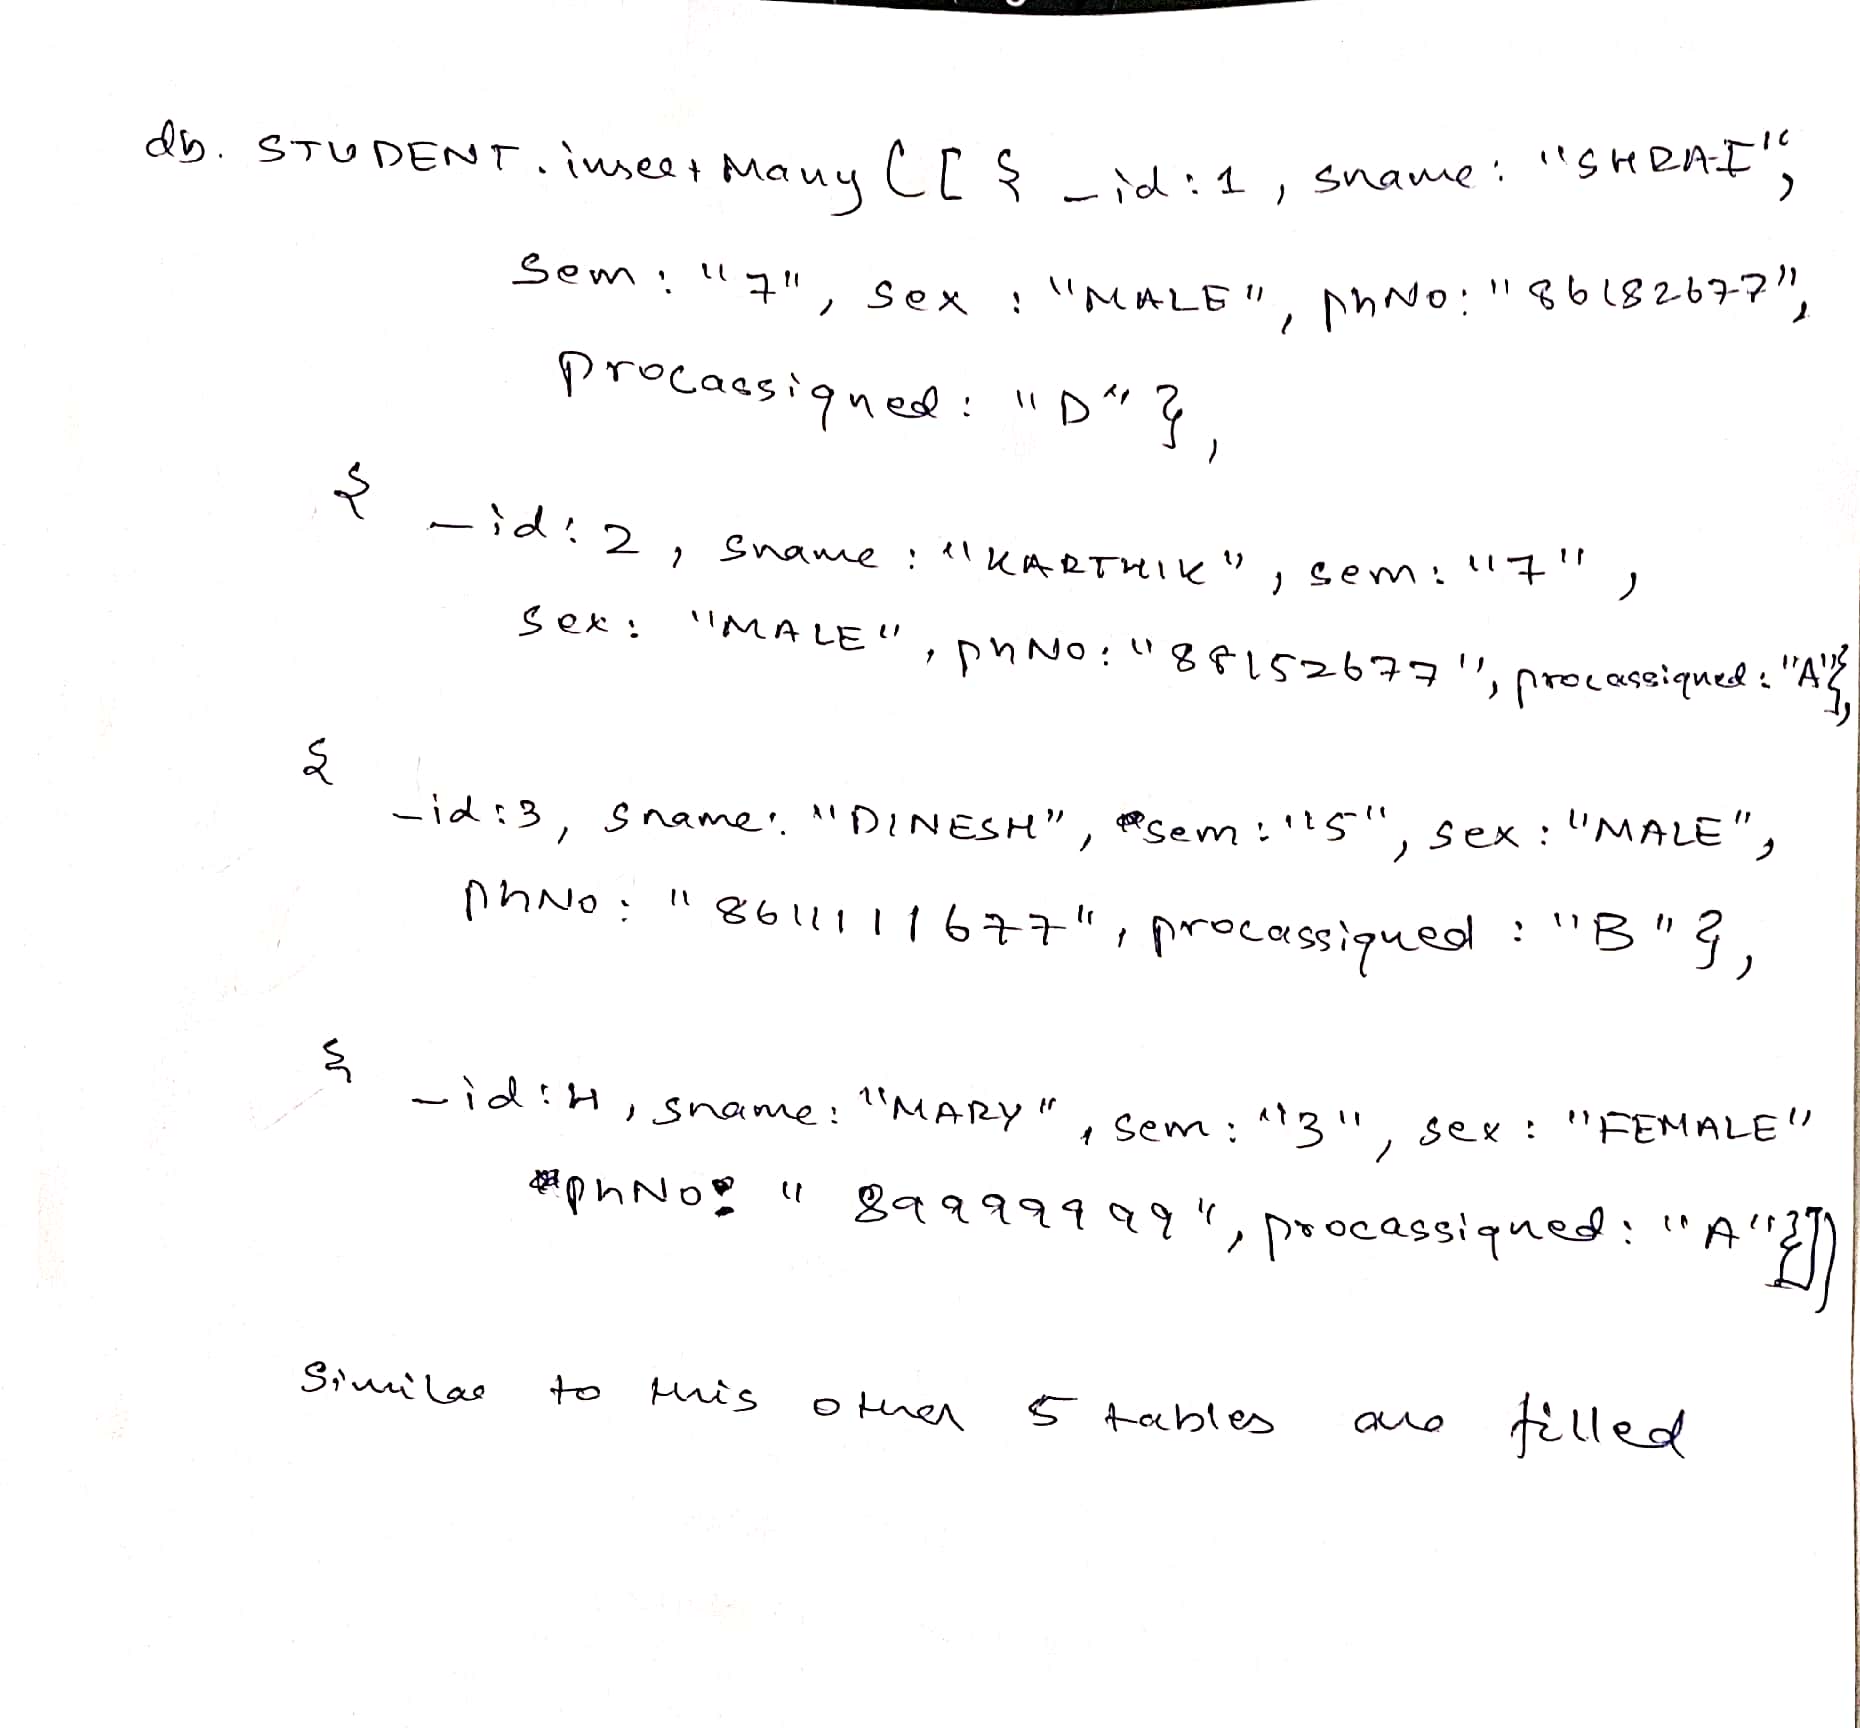 db. STUDENT. insert Many ( [ { _id : 1 , sname : "SHRAI",
Sem : "7" , sex : "MALE" , phNo : "86182677",
Procassigned : "D" } ,
{ _id : 2 , sname : "KARTHIK" , sem : "7" ,
sex : "MALE" , phNo : "88152677" , procassigned : "A"},
{ _id : 3 , sname : "DINESH" , sem : "5" , sex : "MALE" ,
phNo : "8611111677" , procassigned : "B" } ,
{ _id : 4 , sname : "MARY" , sem : "3" , sex : "FEMALE"
phNo : "89999999" , procassigned : "A"}])
Similar to this other 5 tables are filled